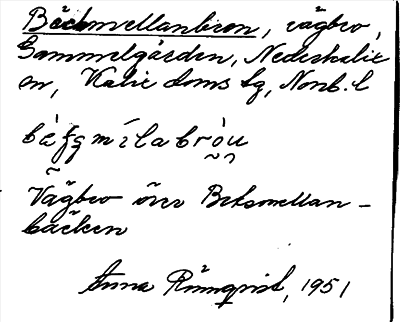 Bäckmellanbron, vägbro,
Gammelgården, Nederkalix
sn, Kalix doms tg, Norrb. l
Vägbro över Bäckmellan-
bäcken
Anna Rönnqvist, 1951